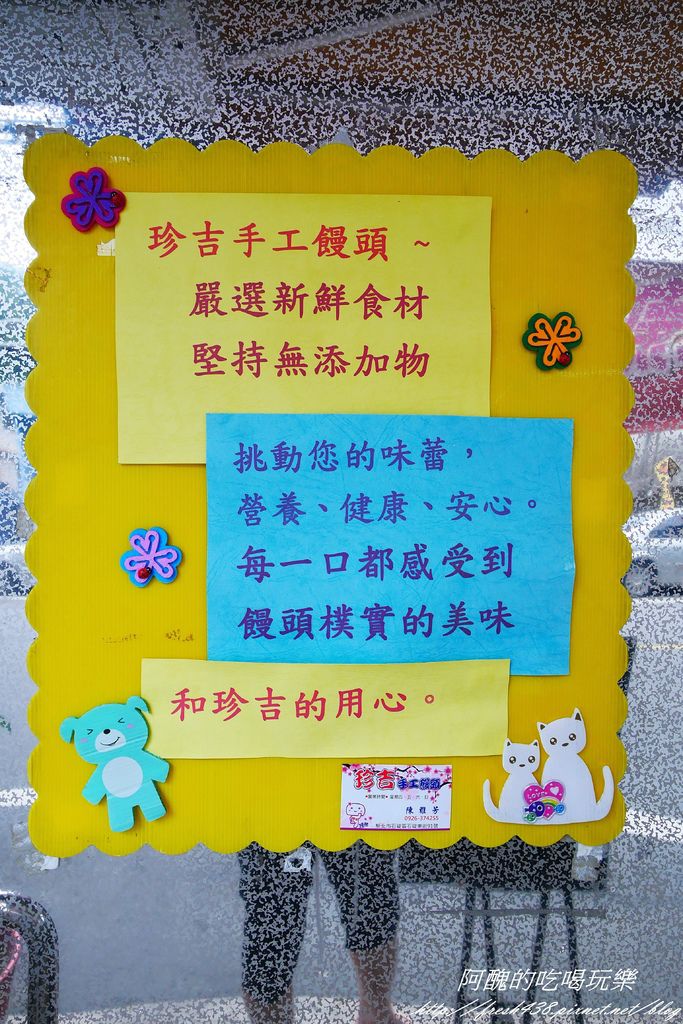 珍吉手工饅頭 ~
嚴選新鮮食材
堅持無添加物
挑動您的味蕾，
營養、健康、安心。
每一口都感受到
饅頭樸實的美味
和珍吉的用心。
珍吉手工饅頭
陳雅芳
0926-374255
阿醜的吃喝玩樂
http://fresh438.pixnet.net/blog